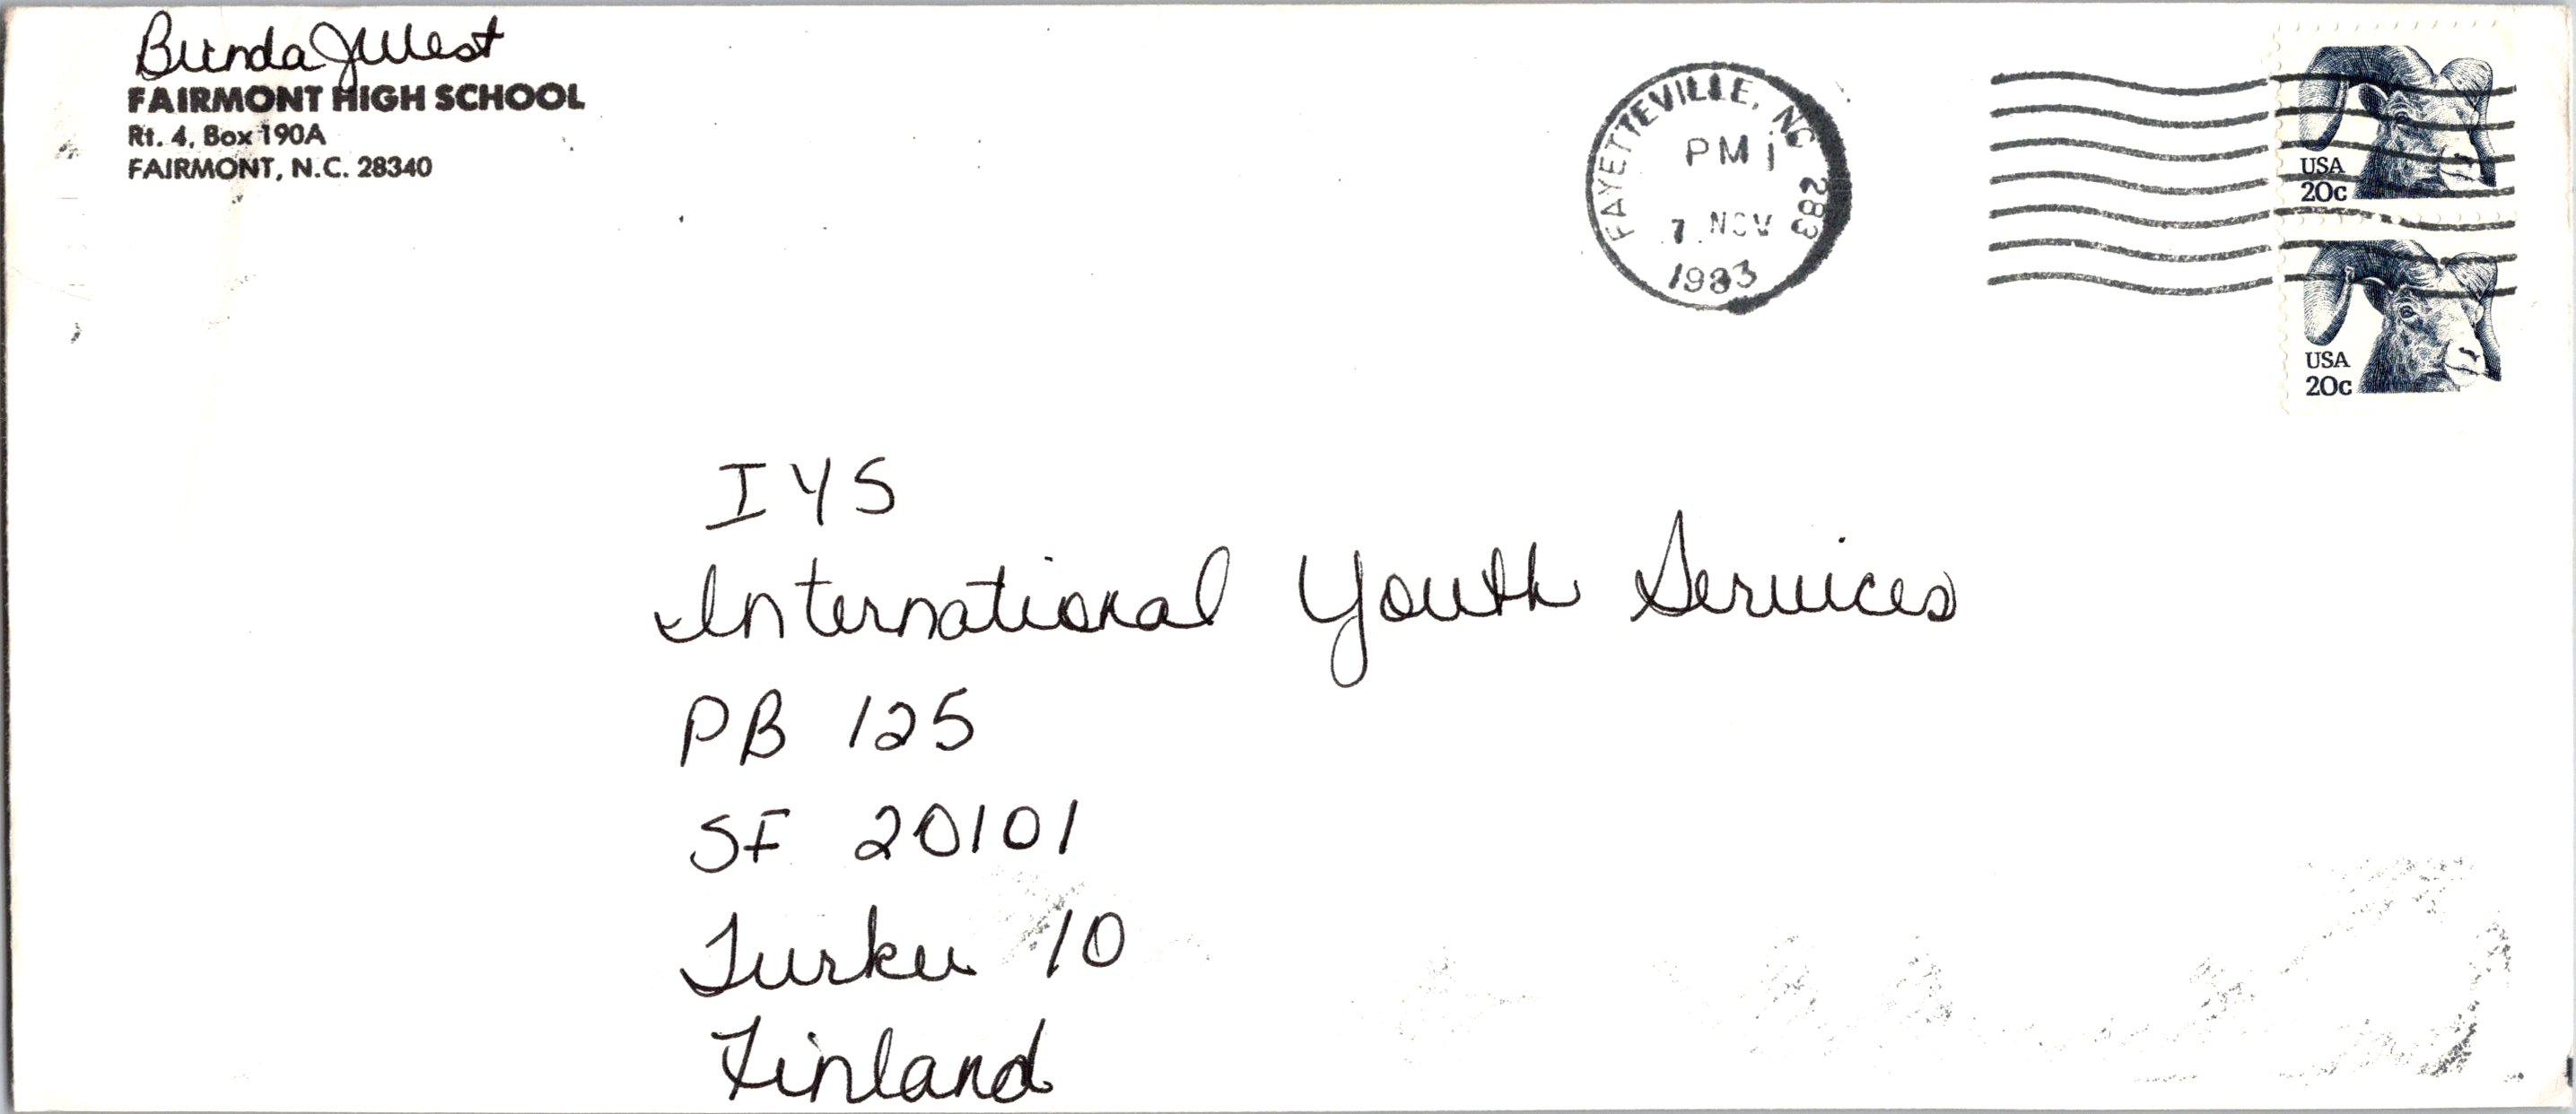 Brenda J West
FAIRMONT HIGH SCHOOL
Rt. 4, Box 190A
FAIRMONT, N.C. 28340
FAYETTEVILLE, NC 283
PM
7 NOV
1983
USA
20c
USA
20c
IYS
International Youth Services
PB 125
SF 20101
Turku 10
Finland